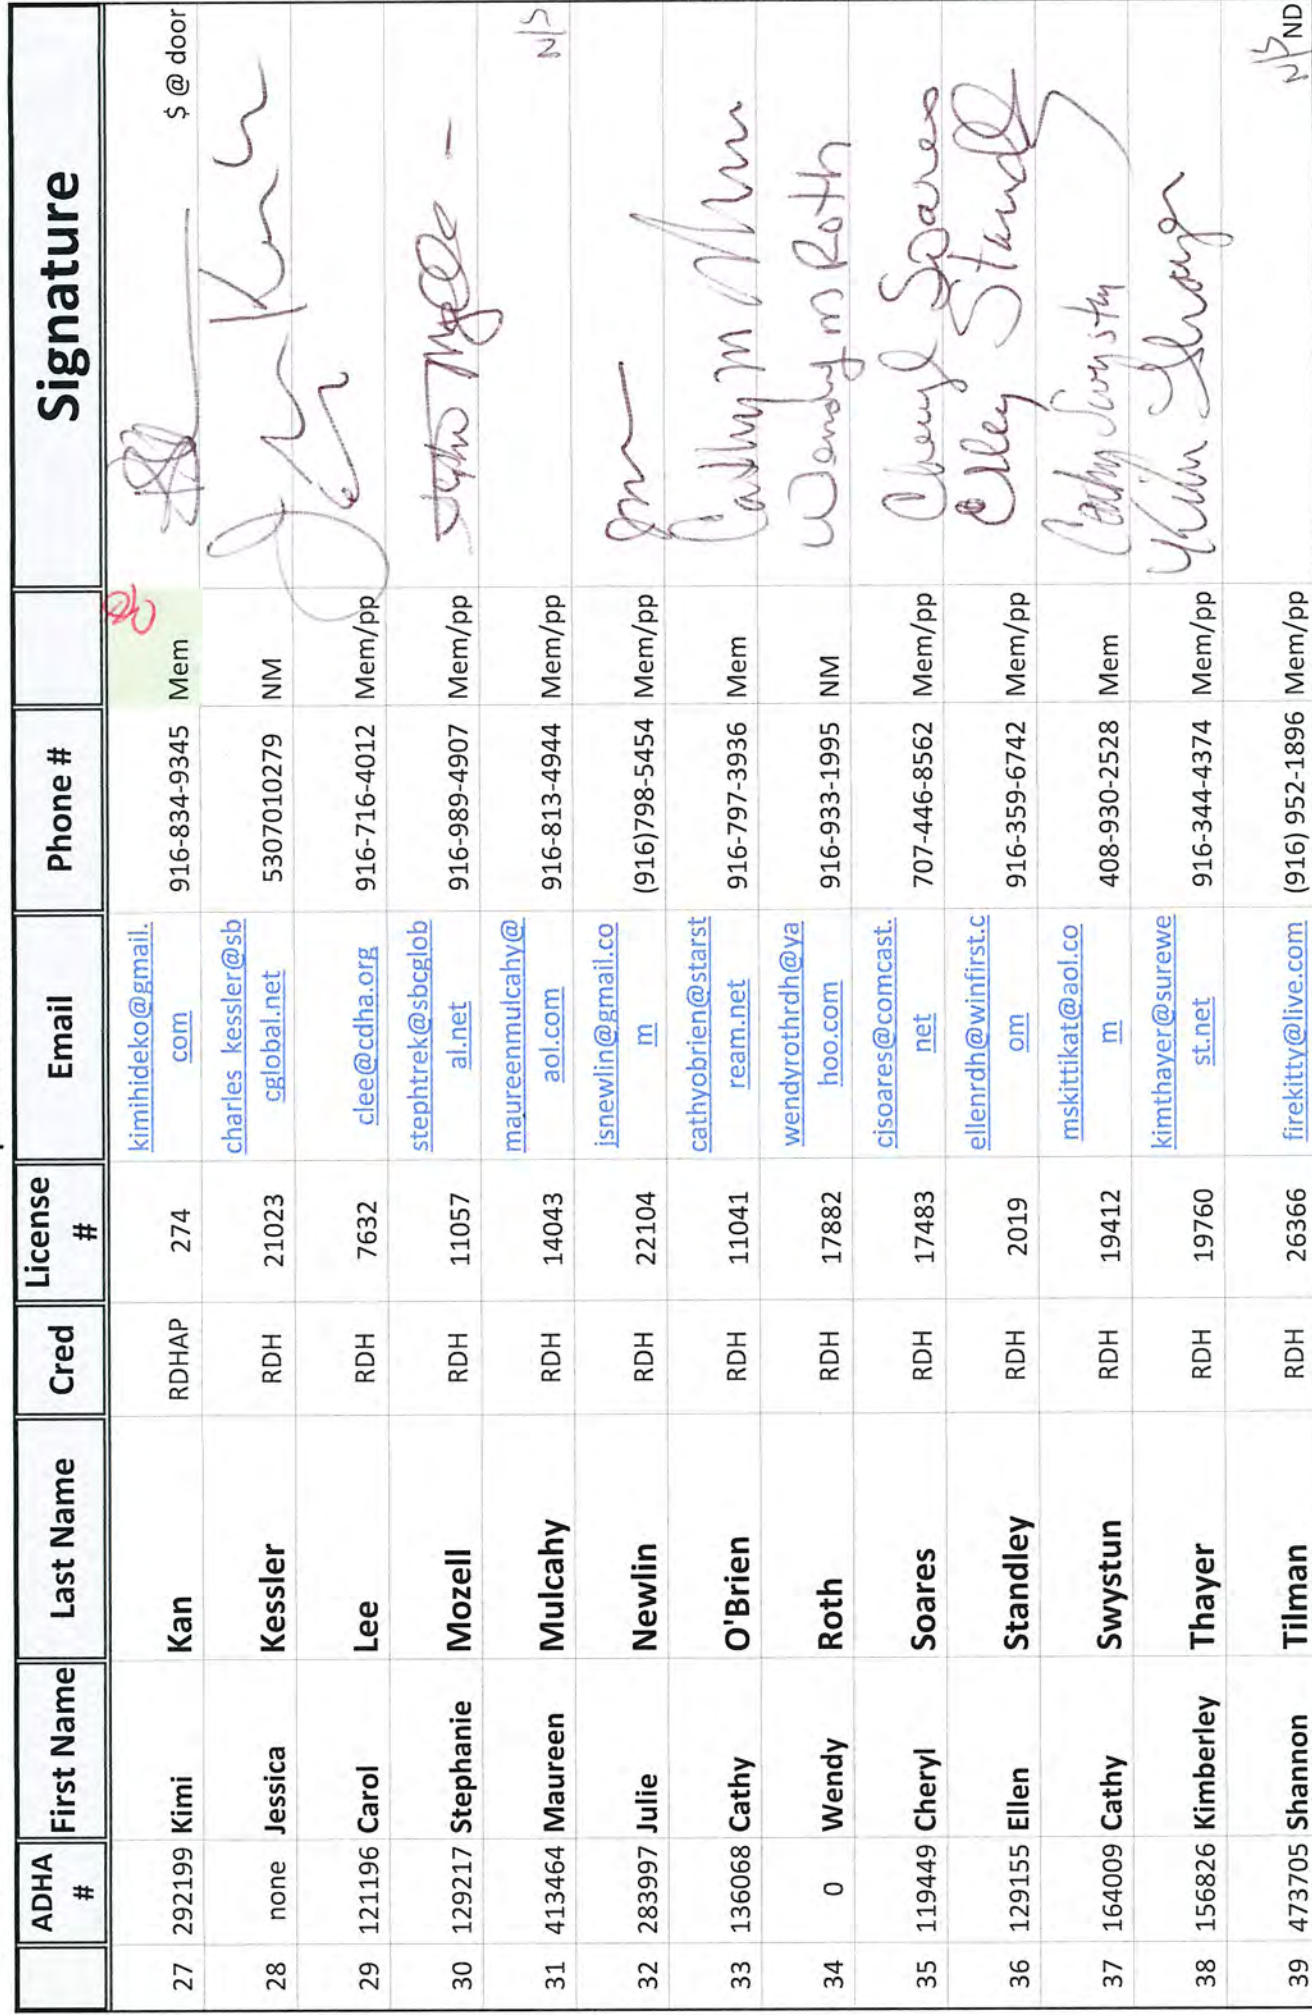 ADHA # First Name Last Name Cred License # Email Phone # Signature
27 292199 Kimi Kan RDHAP 274 kimihideko@gmail.com 916-834-9345 Mem $ @ door
28 none Jessica Kessler RDH 21023 charles kessler@sbcglobal.net 5307010279 NM
29 121196 Carol Lee RDH 7632 clee@cdha.org 916-716-4012 Mem/pp
30 129217 Stephanie Mozell RDH 11057 stephtrek@sbcglobal.net 916-989-4907 Mem/pp
31 413464 Maureen Mulcahy RDH 14043 maureenmulcahy@aol.com 916-813-4944 Mem/pp N/S
32 283997 Julie Newlin RDH 22104 jsnewlin@gmail.com (916)798-5454 Mem/pp
33 136068 Cathy O'Brien RDH 11041 cathyobrien@starstream.net 916-797-3936 Mem Cathy M
34 0 Wendy Roth RDH 17882 wendyrothrdh@yahoo.com 916-933-1995 NM Wendy M Roth
35 119449 Cheryl Soares RDH 17483 cjsoares@comcast.net 707-446-8562 Mem/pp Cheryl Soares
36 129155 Ellen Standley RDH 2019 ellenrdh@winfirst.com 916-359-6742 Mem/pp
37 164009 Cathy Swystun RDH 19412 mskittikat@aol.com 408-930-2528 Mem Cathy Swystun
38 156826 Kimberley Thayer RDH 19760 kimthayer@surewest.net 916-344-4374 Mem/pp Kim Thayer
39 473705 Shannon Tilman RDH 26366 firekitty@live.com (916) 952-1896 Mem/pp N/S ND